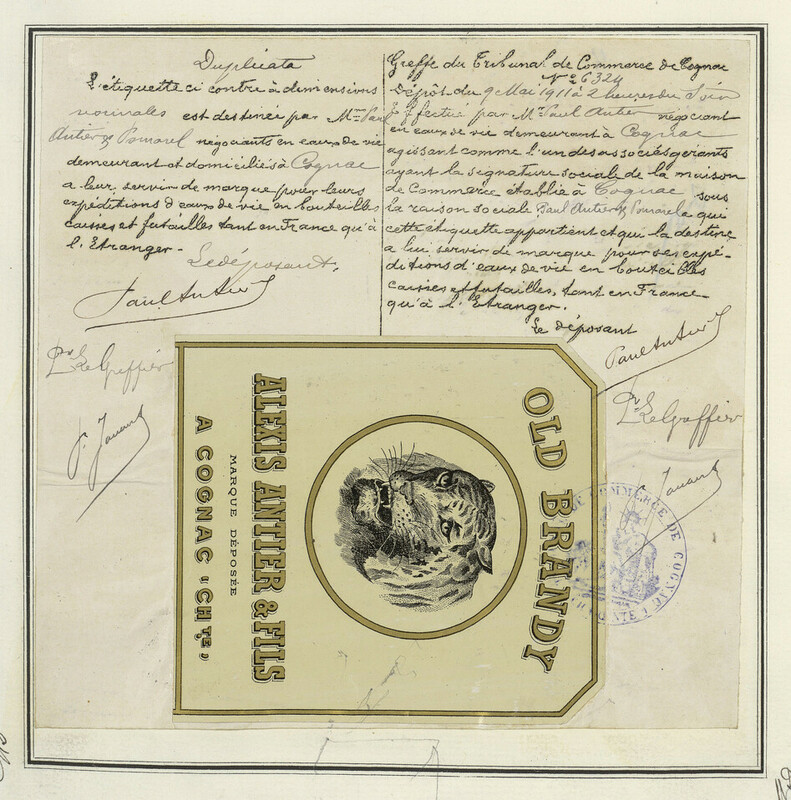 Duplicata
L'étiquette ci contre à dimensions
normales est destinée par Mrs Paul
Antier & Pomarel négociants en eaux de vie
demeurant et domiciliés à Cognac
a leur servir de marque pour leurs
expéditions d'eaux de vie en bouteilles
caisses et futailles tant en France qu'à
l'Etranger.
Le déposant,
Paul Antier
Pr Le Greffier
Greffe du Tribunal de Commerce de Cognac
No 6324
Dépôt du 9 Mai 1911 à 2 heures du Soir
Effectué par Mr Paul Antier négociant
en eaux de vie demeurant à Cognac
agissant comme l'un des associés gérants
ayant la signature sociale de la maison
de Commerce établie à Cognac sous
la raison sociale Paul Antier & Pomarel a qui
cette étiquette appartient et qui la destine
a lui servir de marque pour ses expé-
ditions d'eaux de vie en bouteilles
caisses et futailles, tant en France
qu'à l'Etranger.
Le déposant
Paul Antier
Pr Le Greffier
OLD BRANDY
ALEXIS ANTIER & FILS
MARQUE DÉPOSÉE
A COGNAC (CHTE)
COMMERCE DE COGNAC